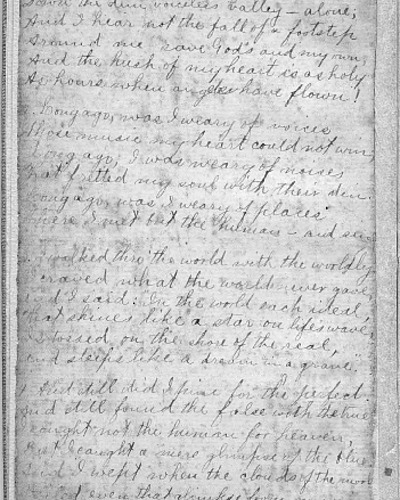 Down the dim, voiceless valley – alone,
And I hear not the fall of a footstep
Around me save God's and my own;
And the hush of my heart is as holy
As hours when angels have flown!
Long ago, was I weary of voices
Whose music my heart could not win
Long ago, I was weary of noises
That fretted my soul with their din
Long ago, was I weary of places
Where I met but the human – and sin
I walked thro the world with the worldly
I craved what the world never gave,
And I said: In the world each ideal,
That shines like a star on life's wave,
Is tossed, on the shore of the real,
And sleeps like a dream in a grave."
And still did I pine for the perfect
And still found the false with the true
I sought not the human for heaven,
But I caught a mere glimpse of the blue
And I wept when the clouds of the
even that glimpse